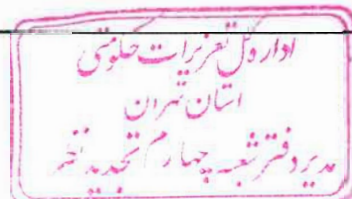 اداره کل تعزیرات حکومتی
استان تهران
مدیر دفتر شعبه چهارم تجدید نظر